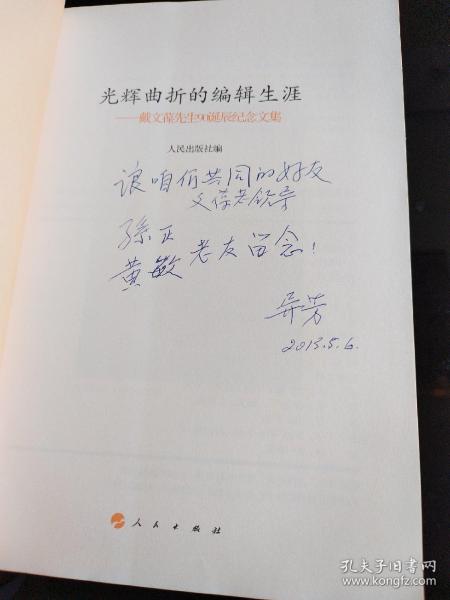 光辉曲折的编辑生涯
——戴文葆先生90诞辰纪念文集
人民出版社编
咱俩共同的好友
文葆老领导
孙正
黄敏 老友留念!
异芳
2013.5.6.
人民出版社
孔夫子旧书网
www.kongfz.com